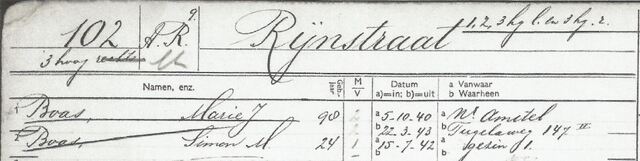 102 A.R. 9. Rijnstraat 1, 2, 3 hg l. en 3 hg. r.
3 hoog rechts
Namen, enz. Geb. jaar M V Datum a)=in; b)=uit a Vanwaar b Waarheen
Boas, Marie J 98 a 5-10-40 a Nr. Amstel
b 22-3-43 b Tugelaweg 147 II
Boas, Simon M. 24 1 a 15-7-42 a gezin 1.
b b